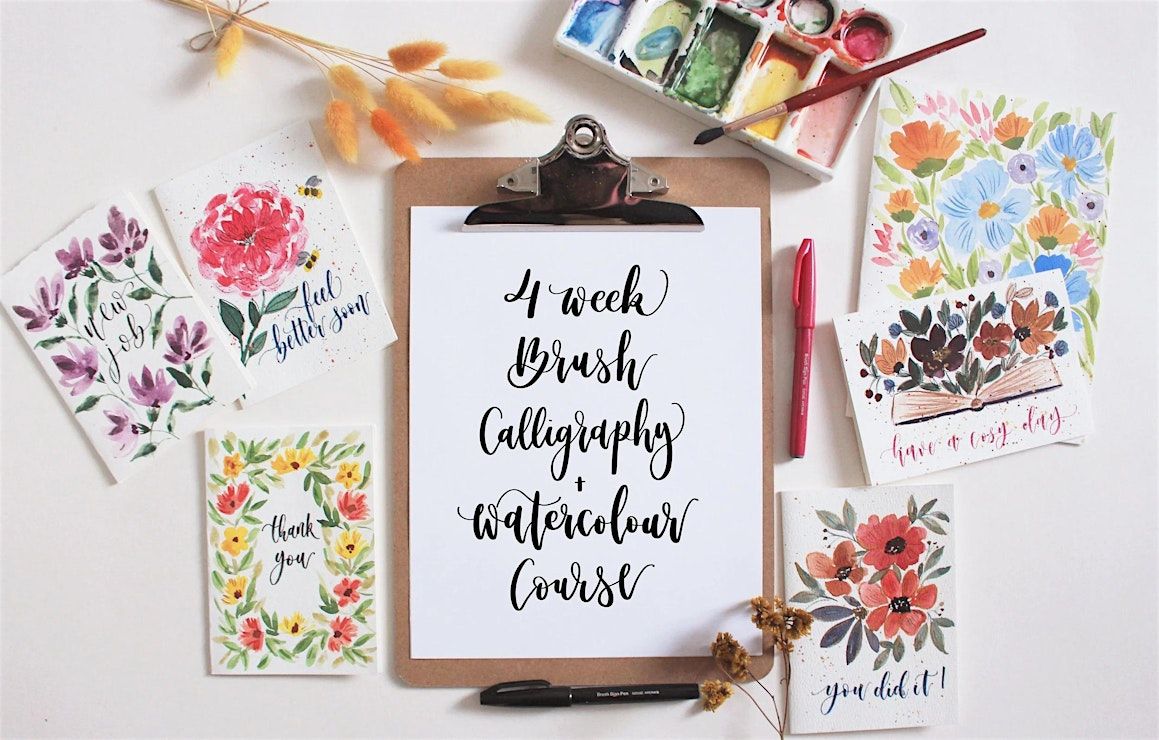 4 week
Brush
Calligraphy
+
watercolour
Course
new
job
feel
better soon
thank
you
have a cosy day
you did it!
Brush Sign Pen
Brush Sign Pen